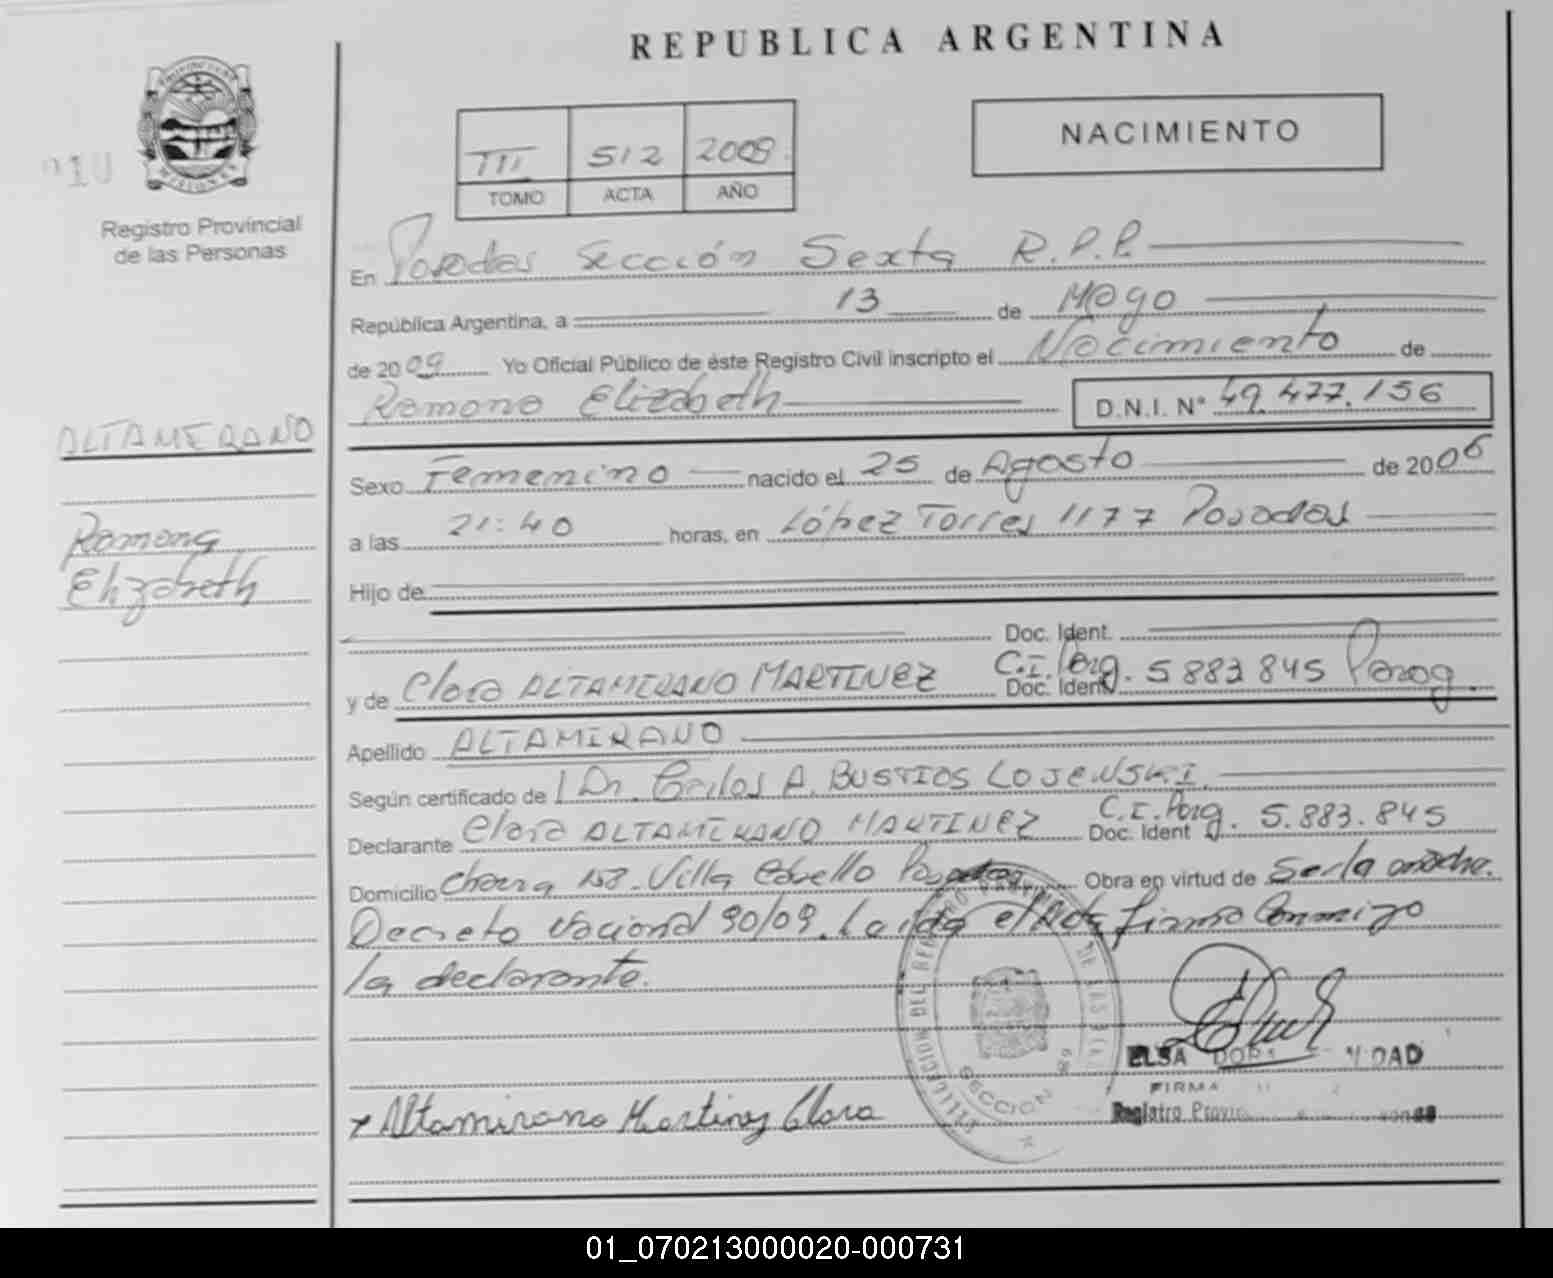 REPUBLICA ARGENTINA
PROVINCIA DE
MISIONES
Registro Provincial
de las Personas
III 512 2009
TOMO ACTA AÑO
NACIMIENTO
En Posadas Sección Sexta R.P.P.
República Argentina, a 13 de Mayo
de 2009 Yo Oficial Público de éste Registro Civil inscripto el Nacimiento de
Ramona Elizabeth D.N.I. N° 49.477.156
ALTAMIRANO
Ramona
Elizabeth
Sexo Femenino nacido el 25 de Agosto de 2006
a las 21:40 horas, en López Torres 1177 Posadas
Hijo de
Doc. Ident.
y de Clara ALTAMIRANO MARTINEZ Doc. Ident. C.I. Parg. 5883845 Parag.
Apellido ALTAMIRANO
Según certificado de Dr. Carlos A. BUSTIOS LOJENSKI.
Declarante Clara ALTAMIRANO MARTINEZ Doc. Ident C.I. Parg. 5.883.845
Domicilio Chacra 158. Villa Cabello Posadas Obra en virtud de
Decreto Nacional 90/09. Leída el Acta firma Conmigo
la declarante.
SECCION
ELSA
FIRMA
Registro
Altamirano Martinez Clara
01_070213000020-000731